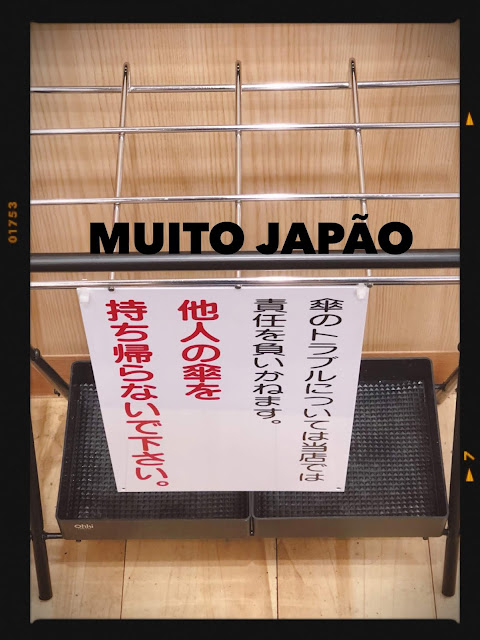 MUITO JAPÃO
傘のトラブルについては当店では
責任を負いかねます。
他人の傘を
持ち帰らないで下さい。
Ohbi
01753
7